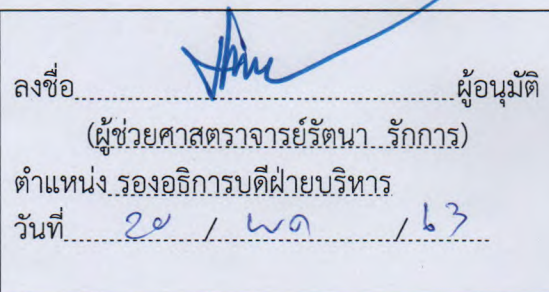 ลงชื่อ ผู้อนุมัติ
(ผู้ช่วยศาสตราจารย์รัตนา รักการ)
ตำแหน่ง รองอธิการบดีฝ่ายบริหาร
วันที่ 20 / พค / 63